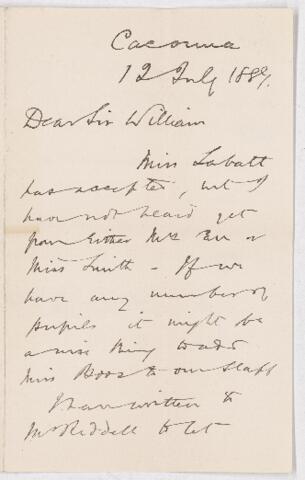 Cacouna
12 July 1889.
Dear Sir William
Miss Labatt
has accepted, but I
have not heard yet
from Either Mrs or
Miss Smith - If we
have any number of
pupils it might be
a wise thing to add
Miss to our staff
I have written to
Mr Riddell to let